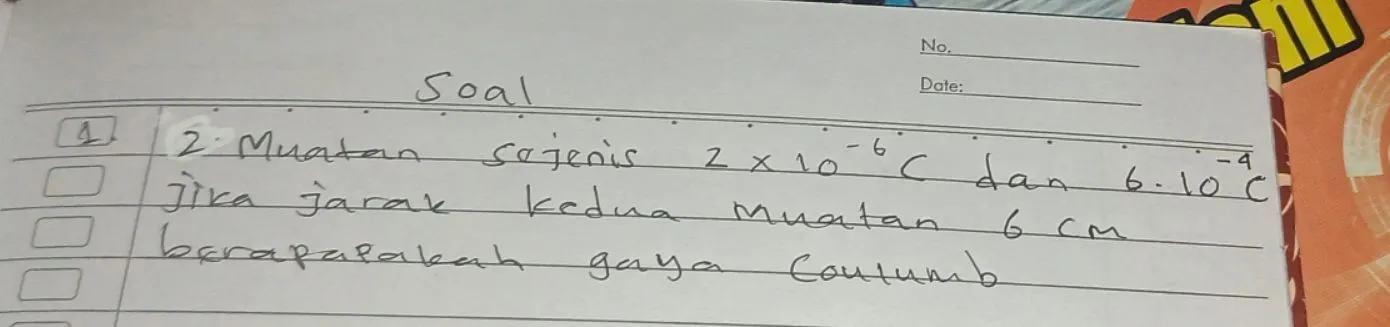 No.
Date:
Soal
1 2. Muatan sejenis 2 x 10⁻⁶ C dan 6.10⁻⁴ C
jika jarak kedua muatan 6 cm
berapapakah gaya Coulumb